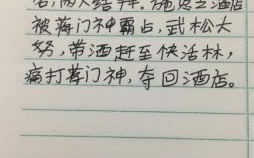 名,两人结拜。施恩之酒店
被蒋门神霸占,武松大
怒,带酒赶至快活林,
痛打蒋门神,夺回酒店。